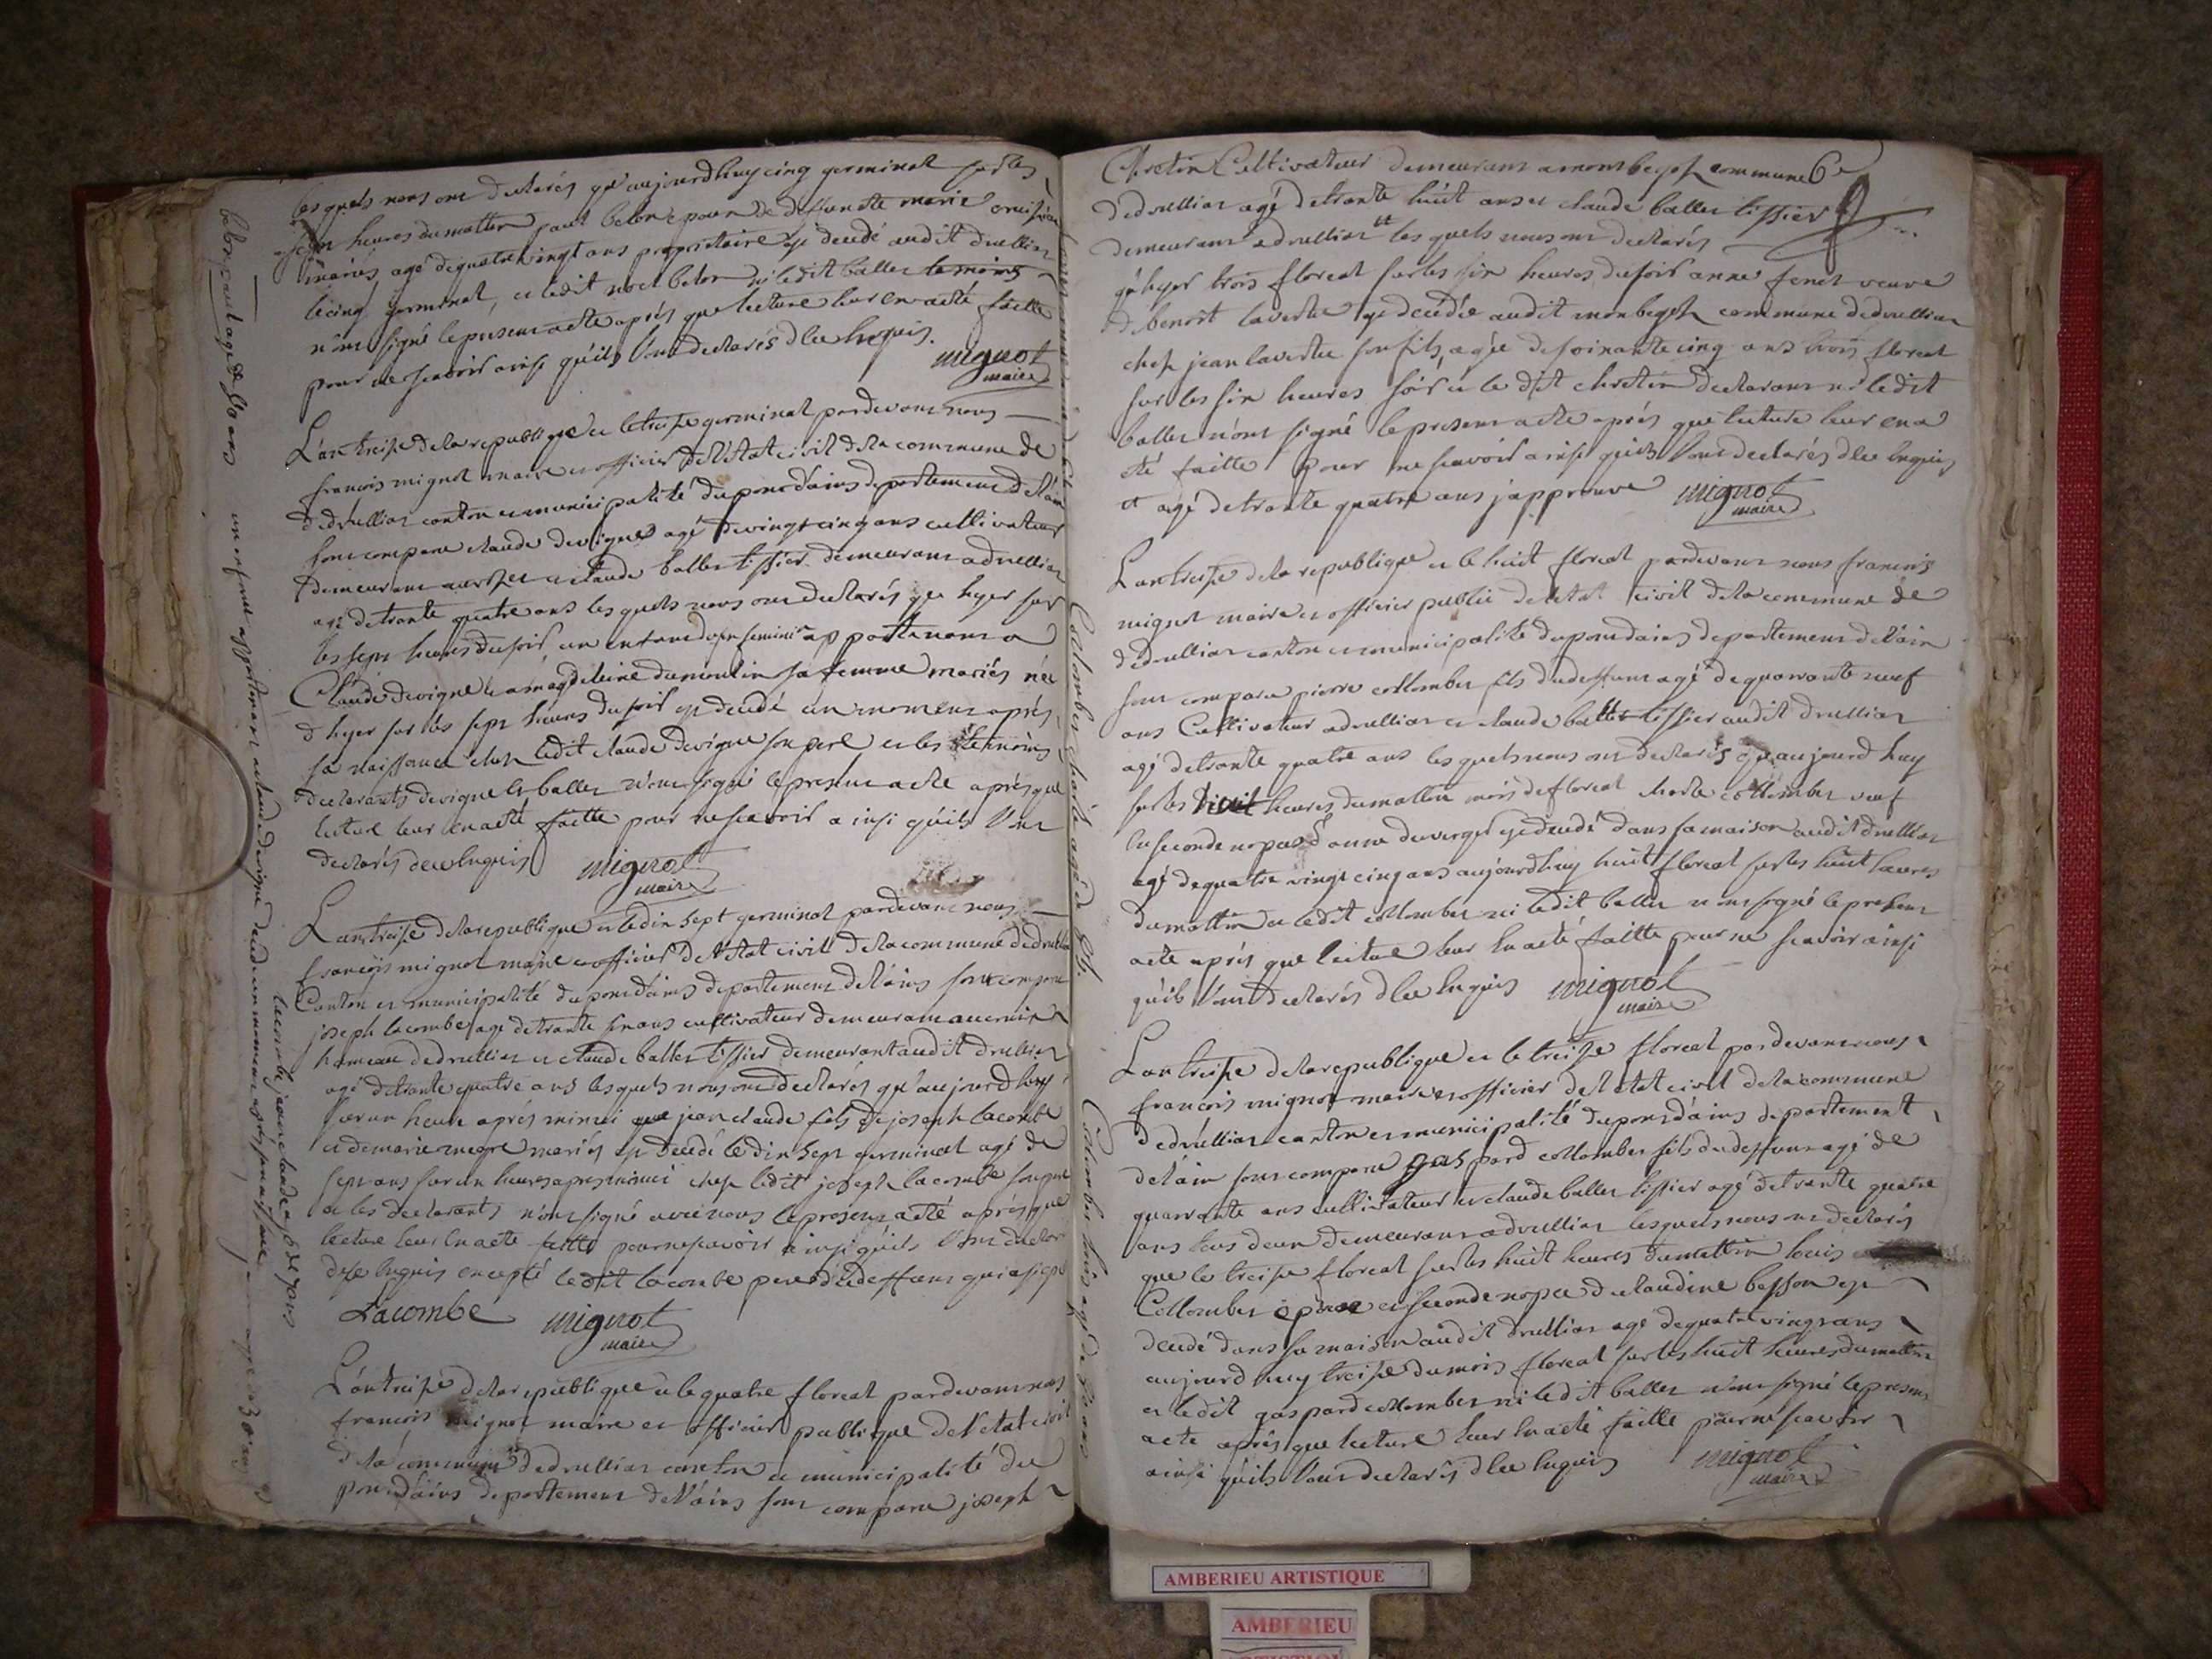 lesquels nous ont declarés qu'aujourdhuy cinq germinal sur les
sept heures du mattin paul belon epoux de deffuncte marie
mariés agé de quatre vingt ans propriétaire est decedé audit druillia
le cinq germinal, et ledit noel belon ni ledit ballet temoins
n'ont signé le present acte après que lecture leur en a été faitte
pour ne scavoir ainsi qu'ils l'ont declarés d'ce enquis.
mignot
maire
L'an treise de la republique et le treise germinal pardevant nous
francois mignot maire et officier de l'état civil de la commune de
dedruillia canton et municipalité du pond'ains departement de l'ain
sont comparu claude devigne agé de vingt cinq ans cultivateur
demeurant et claude ballet tissier demeurant a druillia
agé de trante quatre ans lesquels nous ont declarés que hyer sur
les sept heures du soir un enfant du sex feminin appartenant a
Claude devigne et a magdeleine dumoulin sa femme mariés née
d'hyer sur les sept heures du soir est decedé un moment après
sa naissance chez ledit claude devigne son pere et les temoins
declarants devigne et ballet n'ont signé le present acte après que
lecture leur en a eté faitte pour ne scavoir ainsi qu'ils l'ont
declarés de ce enquis mignot
maire
L'an treise de la republique et le dix sept germinal pardevant nous
françois mignot maire et officier de l'état civil de la commune dedruillia
Canton et municipalité du pond'ains departement de l'ains sont comparu
joseph lacombe agé de trante six ans cultivateur demeurant au
hameau dedruillia et claude ballet tissier demeurant audit druillia
agé de trante quatre ans lesquels nous ont declarés qu'aujourdhuy
sur un heure après mimui que jean claude fils de joseph lacombe
et de marie mariés est decedé le dix sept germinal agé de
sept ans sur un heures apres mimui chez ledit joseph lacombe son pere
et les declarants n'ont signé avec nous le present acte après que
lecture leur en a eté faitte pour ne scavoir ainsi qu'ils l'ont declaré
de ce enquis excepté ledit lacombe pere du deffunt qui a signé
Lacombe mignot
maire
L'an treise de la republique et le quatre floreal pardevant nous
francois mignot maire et officier publique de l'etat civil
de la commune dedruillia canton et municipalité du
pond'ains departement de l'ains sont comparu joseph
belon paul agé de 80 ans
un enfant appartenant a claude devigne decedé un moment après sa naissance
lacombe jean claude agé de 7 ans
Collomber charle agé de 85.
Collomber louis agé de 80 ans
Chretin Cultivateur demeurant a monbegoz commune 6e
dedruillia agé de trante huit ans et claude ballet tissier
demeurant a druillia # lesquels nous ont declarés
qu'hyer trois floreal sur les six heures du soir anne fenet veuve
de benoit lavertu est decedée audit monbegoz commune dedruillia
chez jean lavertu son fils, agée de soixante cinq ans trois floreal
sur les six heures soir et le dit chretin declarant ni ledit
ballet n'ont signé le present acte après que lecture leur en a
eté faitte pour ne scavoir ainsi qu'ils l'ont declarés d'ce enquis
# agé de trante quatre ans j'approuve mignot
maire
L'an treise de la republique et le huit floreal pardevant nous francois
mignot maire et officier public de l'etat civil de la commune de
dedruillia canton et municipalité du pond'ains departement de l'ain
sont comparu pierre collomber fils du deffunt agé de quarante neuf
ans Cultivateur a druillia et claude ballet tissier audit druillia
agé de trante quatre ans lesquels nous ont declarés que aujourd huy
sur les huit heures du mattin mois de floreal charle collomber veuf
en seconde nopces d'anne duverger est decedé dans sa maison audit druillia
agé de quatre vingt cinq ans aujourdhuy huit floreal sur les huit heures
du mattin et ledit collomber ni ledit ballet n'ont signé le present
acte après que lecture leur en a eté faitte pour ne scavoir ainsi
qu'ils l'ont declarés d'ce enquis mignot
maire
L'an treise de la republique et le treise floreal pardevant nous
francois mignot maire et officier de l'état civil de la commune
dedruillia canton et municipalité du pond'ains departement
de l'ain sont comparu gaspard collomber fils du deffunt agé de
quarrante ans cultivateur et claude ballet tissier agé de trante quatre
ans tous deux demeurant a druillia lesquels nous ont declarés
que le treise floreal sur les huit heures du mattin louis
Collomber epoux en seconde nopce de claudine besson est
decedé dans sa maison audit druillia agé de quatre vingt ans
aujourd huy treise du mois floreal sur les huit heures du mattin
et ledit gaspard collomber ni ledit ballet n'ont signé le present
acte après que lecture leur en a eté faitte pour ne scavoir
ainsi qu'ils l'ont declarés d'ce enquis mignot
maire
AMBERIEU ARTISTIQUE
AMBERIEU